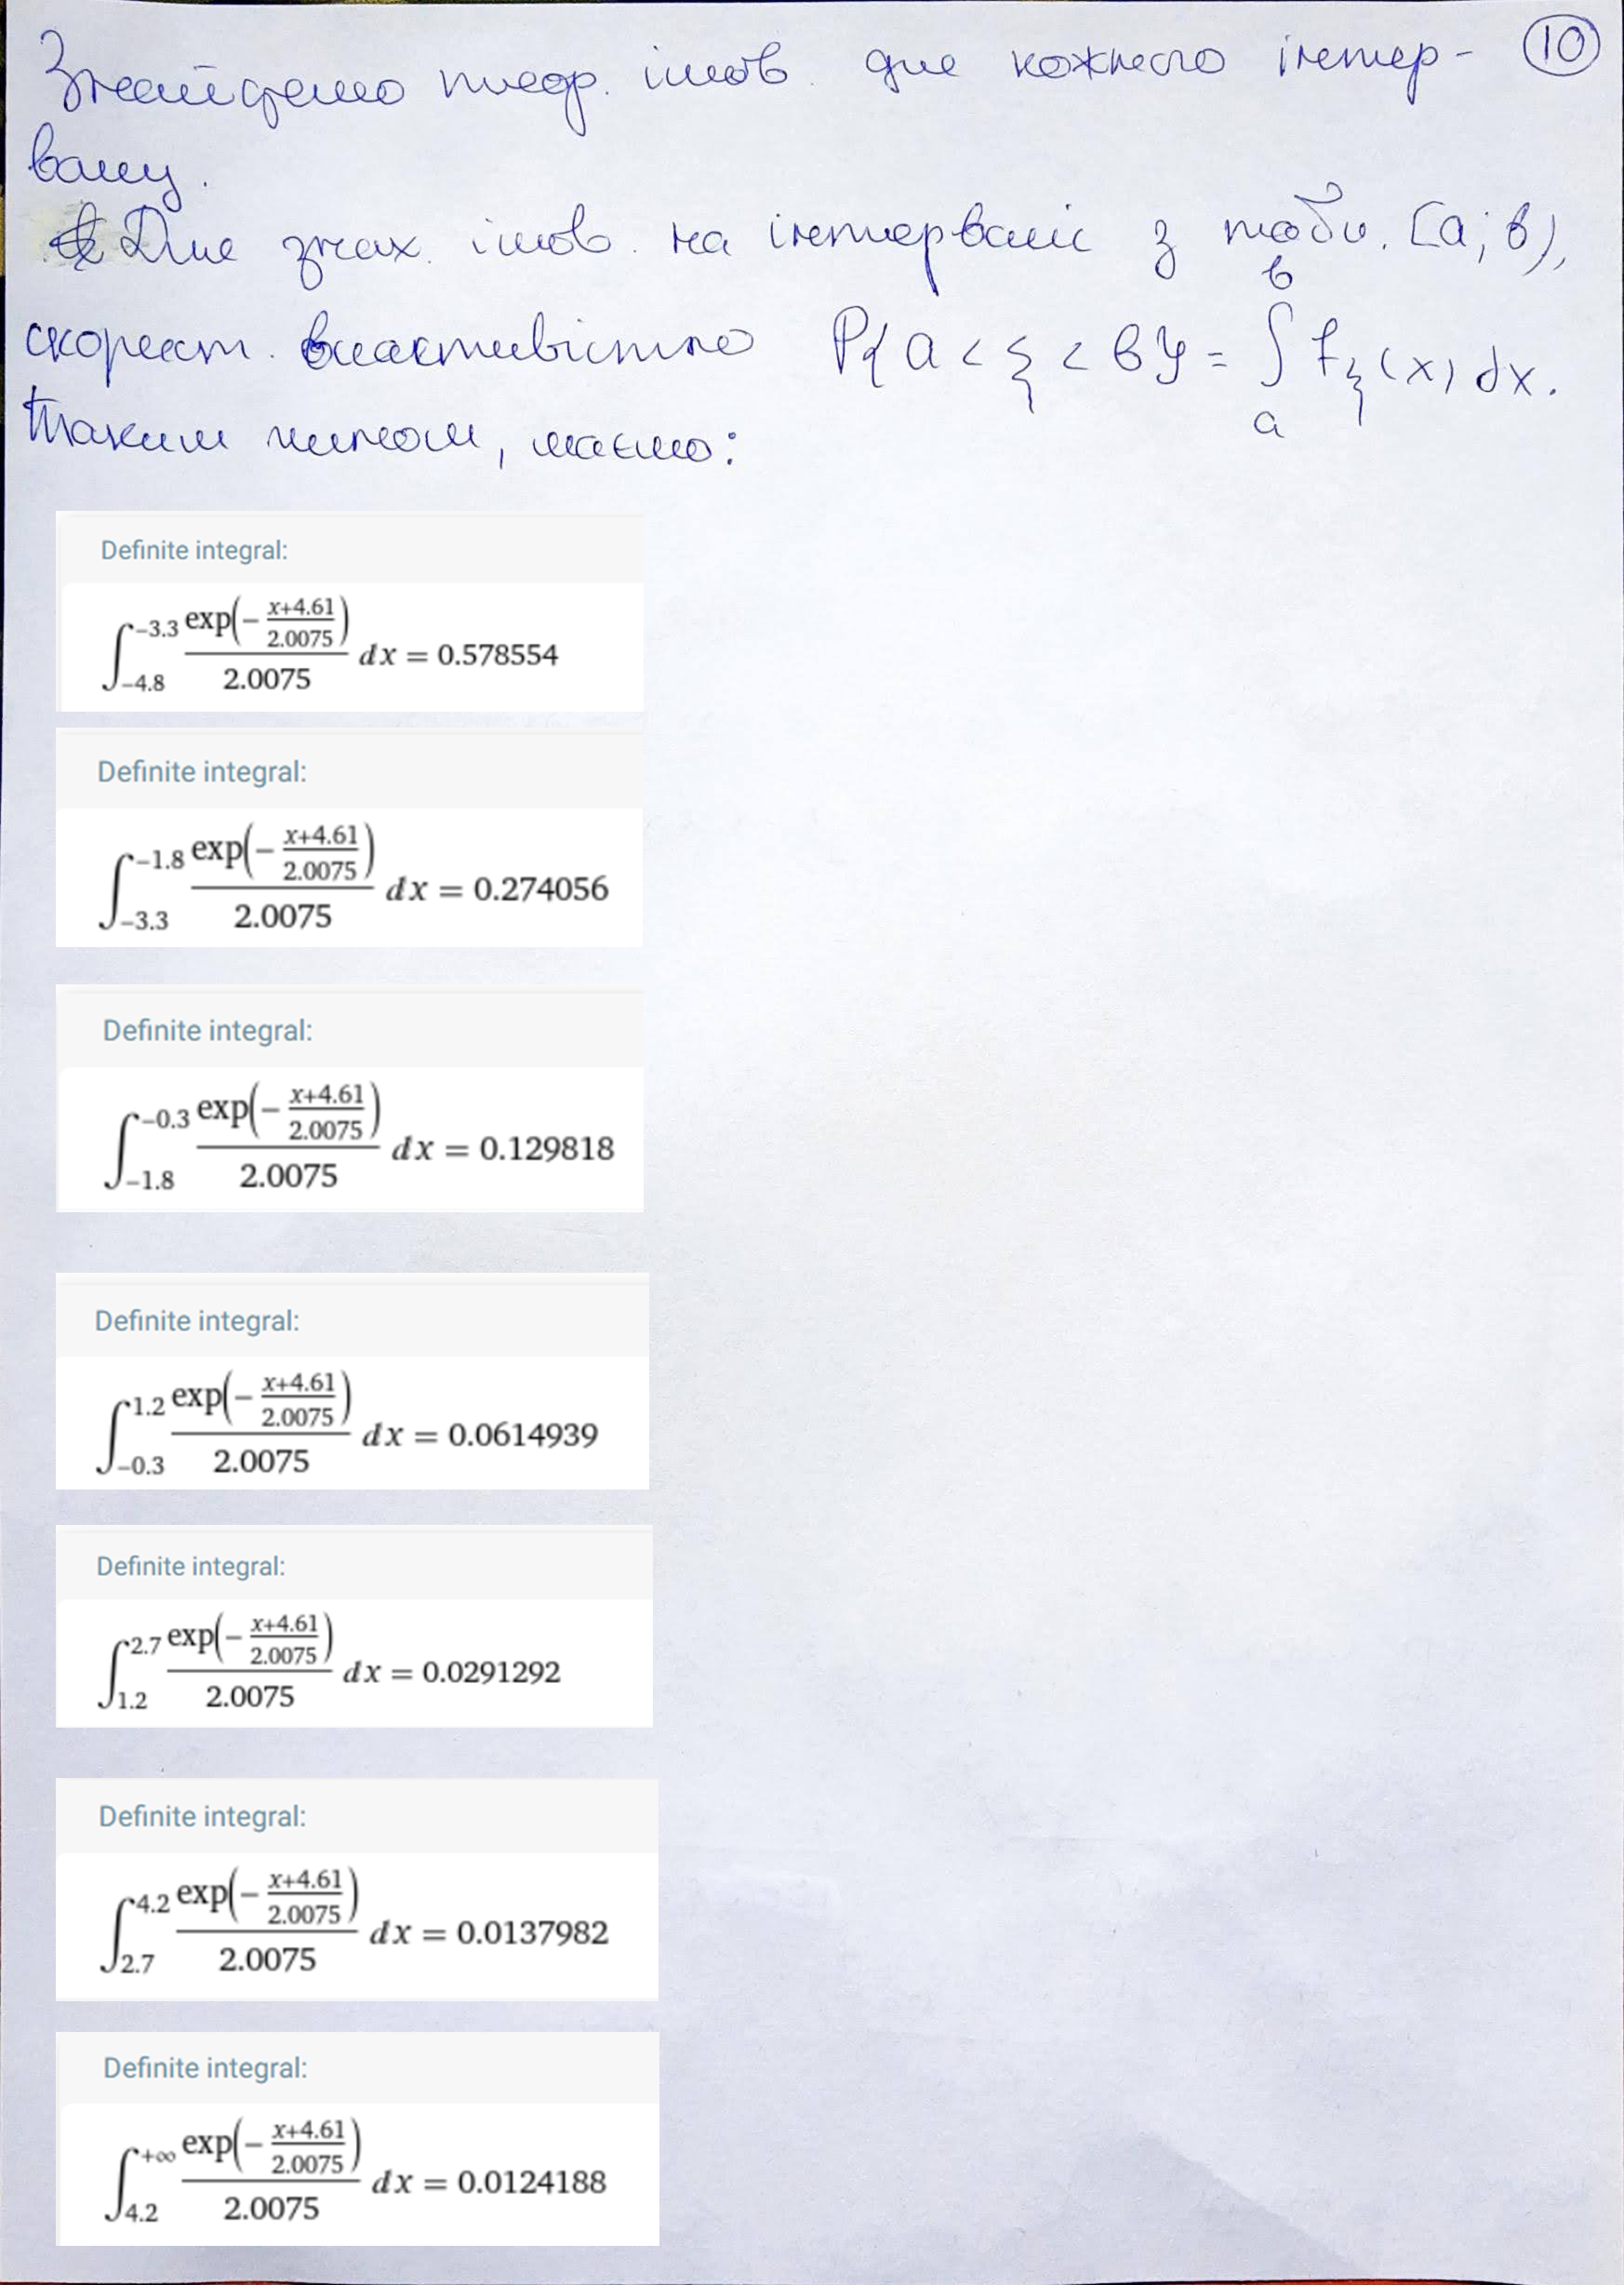 Знайдемо теор. імов. для кожного інтер- 10
валу.
Для знах. імов. на інтервалі з табл. [a; b),
скорист. властивістю P{a < ξ < b} = ∫_a^b f_ξ(x) dx.
Таким чином, маємо:
Definite integral:
∫_{-4.8}^{-3.3} exp(-(x+4.61)/2.0075)/2.0075 dx = 0.578554
Definite integral:
∫_{-3.3}^{-1.8} exp(-(x+4.61)/2.0075)/2.0075 dx = 0.274056
Definite integral:
∫_{-1.8}^{-0.3} exp(-(x+4.61)/2.0075)/2.0075 dx = 0.129818
Definite integral:
∫_{-0.3}^{1.2} exp(-(x+4.61)/2.0075)/2.0075 dx = 0.0614939
Definite integral:
∫_{1.2}^{2.7} exp(-(x+4.61)/2.0075)/2.0075 dx = 0.0291292
Definite integral:
∫_{2.7}^{4.2} exp(-(x+4.61)/2.0075)/2.0075 dx = 0.0137982
Definite integral:
∫_{4.2}^{+∞} exp(-(x+4.61)/2.0075)/2.0075 dx = 0.0124188